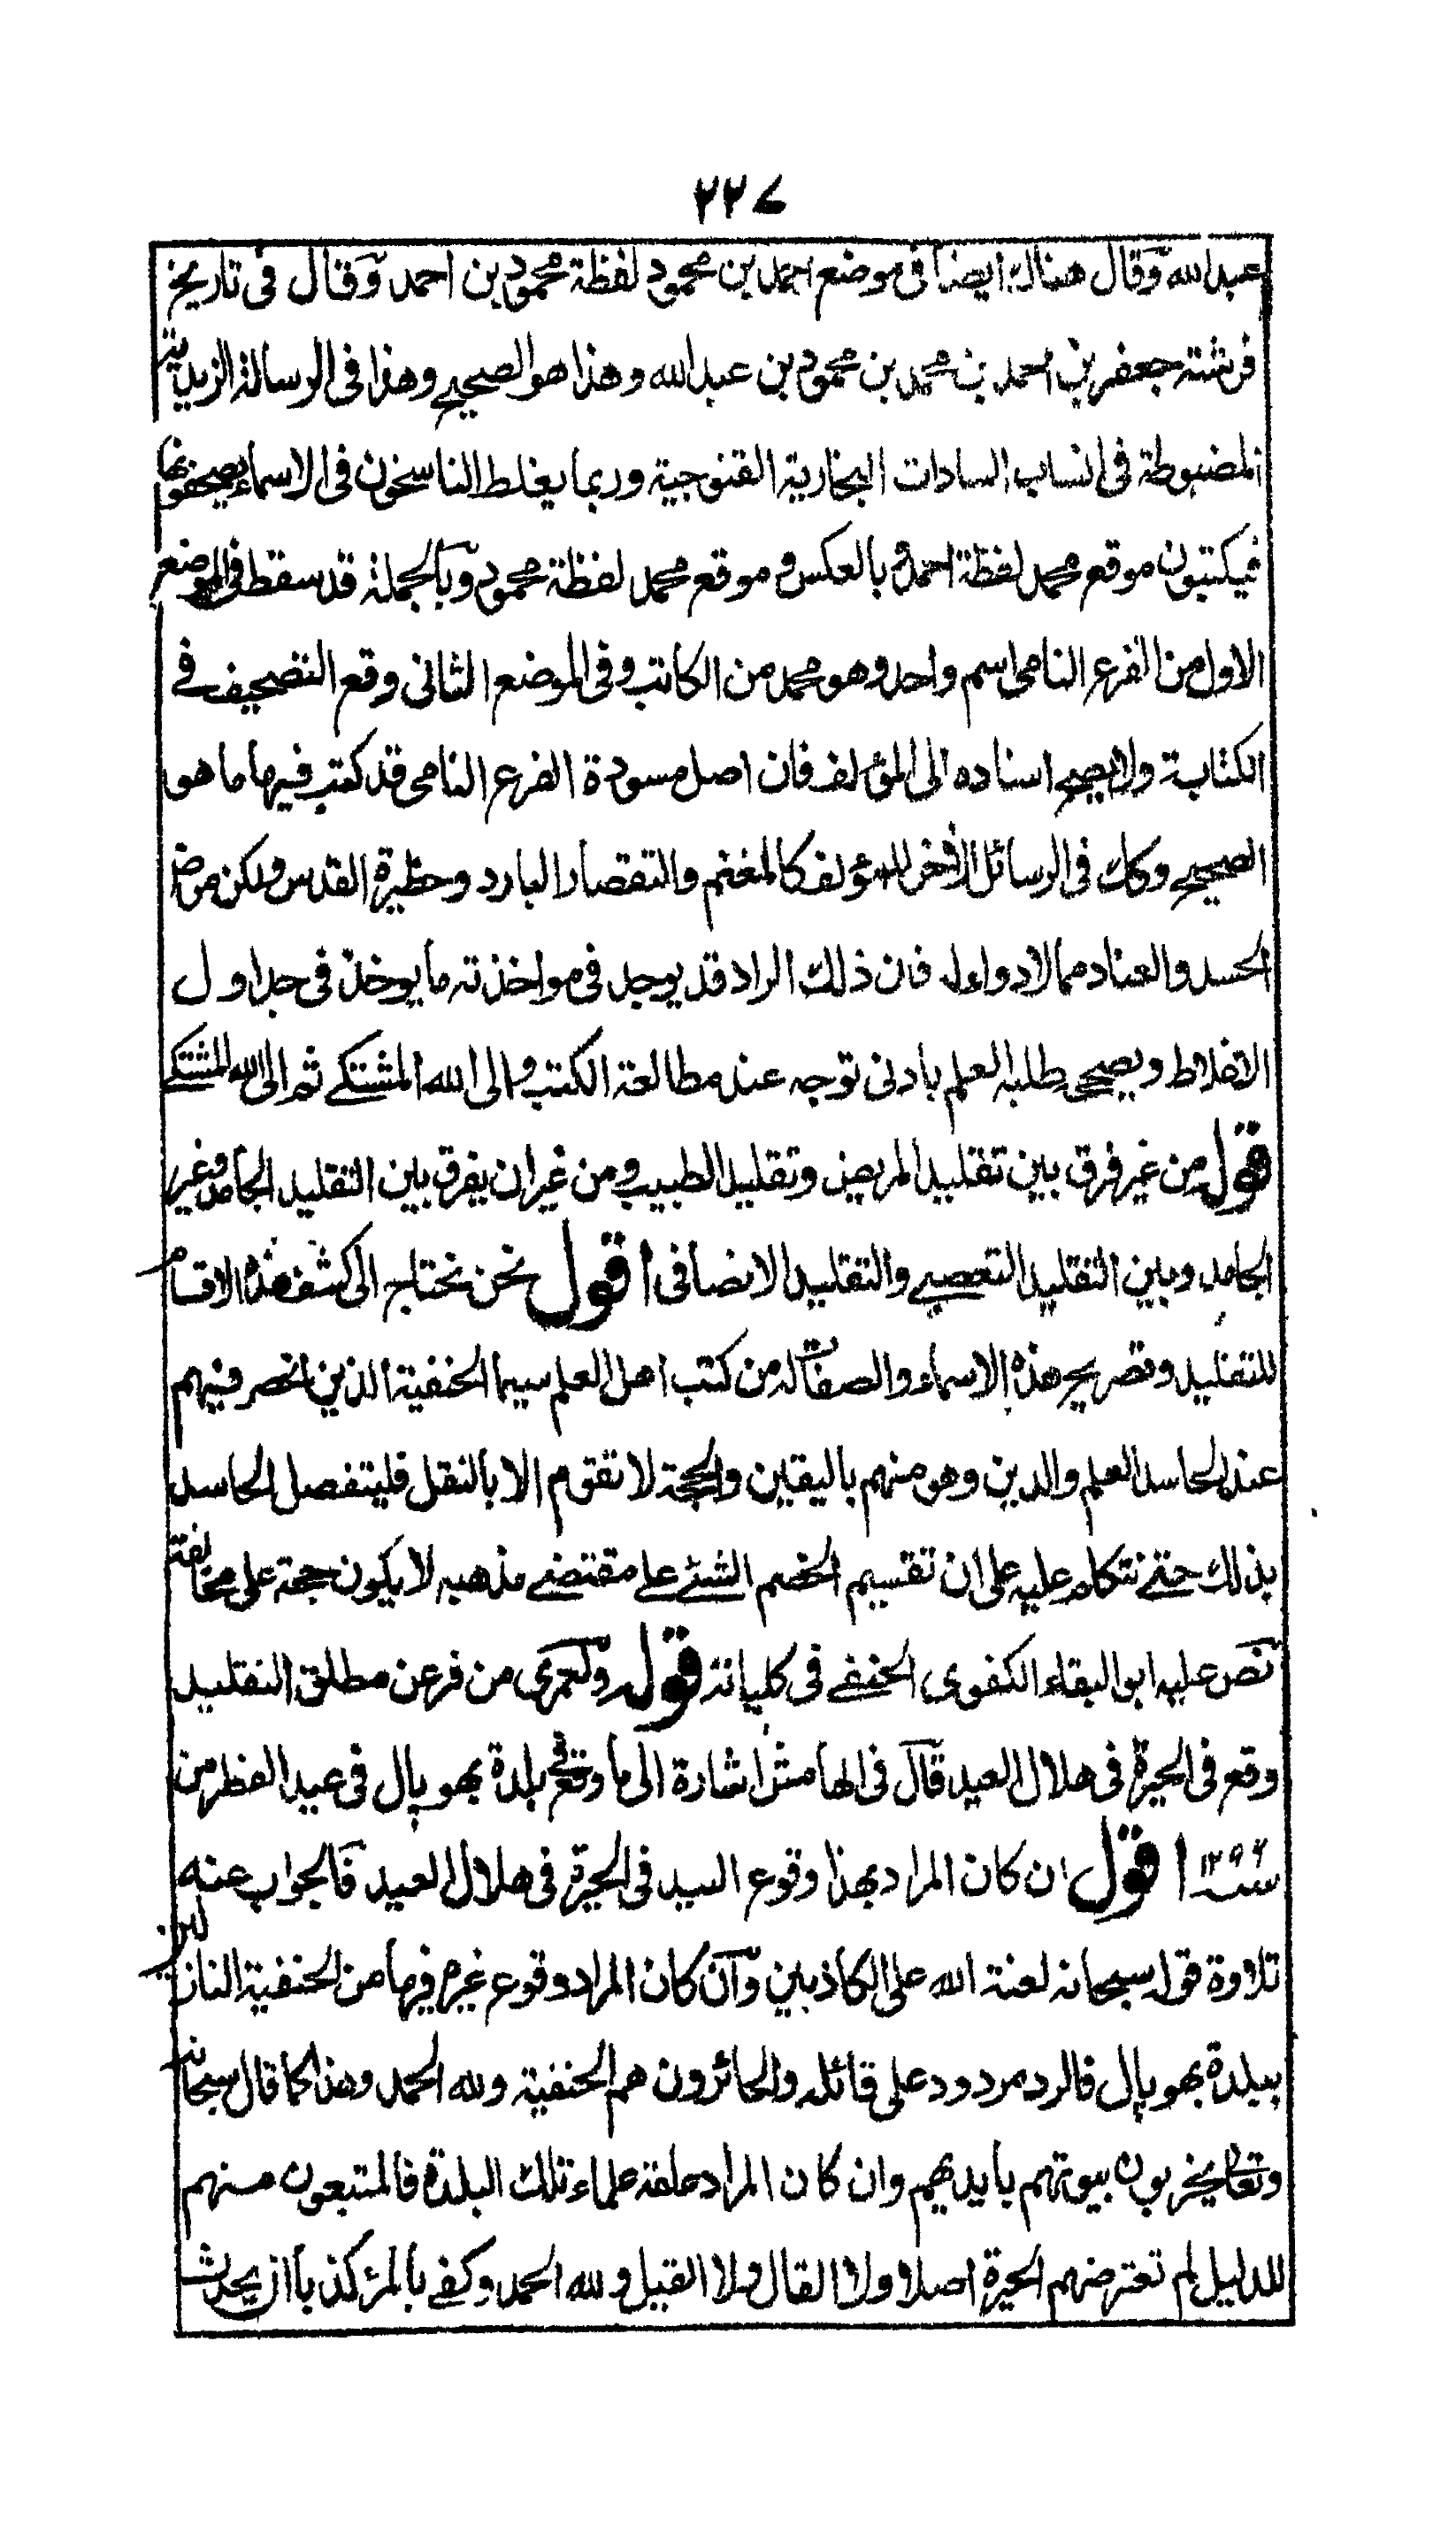 ٢٢٧
عبد الله وقال هناك ايضا فى موضع احمد بن محمود لفظة محمود بن احمد وقال فى تاريخ
فرشته جعفر بن احمد بن محمد بن محمود بن عبد الله وهذا هو الصحيح وهذا فى الرسالة الزيدية
المضبوطة فى انساب السادات البخارية القنوجية وربما يغلط الناسخون فى الاسماء يصحفونها
فيكتبون موقع محمد لفظة احمد و بالعكس و موقع محمد لفظة محمود وبالجملة قد سقط فى الموضع
الاول من الفرع النامى اسم واحد وهو محمد من الكاتب وفى الموضع الثانى وقع التصحيف فے
الكتابة ولا يصح اسناده الى المؤلف فان اصل مسودة الفرع النامى قد كتب فيها ما هو
الصحيح وكك فى الرسائل الاخر للمؤلف كالمغنم والتقصار البارد وحظيرة القدس ولكن مرض
الحسد والعناد مما لا دواء له فان ذلك الراد قد يوجد فى مواخذته ما يوخذ فى جداول
الاغلاط ويصححه طلبة العلم بادنى توجه عند مطالعة الكتب والى الله المشتكے ثم الى الله المشتكے
قوله من غير فرق بين تقليد المريض وتقليد الطبيب ومن غير ان يفرق بين التقليد الجامد وغير
الجامد وبين التقليد التعصبے والتقليد الانصافى اقول نحن نحتاج الى كشف هذه الاقسام
للتقليد وتصريح هذه الاسماء والصفات له من كتب اهل العلم سيما الحنفية الذين انحصر فيهم
عند الحاسد العلم والدين وهو منهم باليقين والحجة لا تقوم الا بالنقل فليتفصل الحاسد
بذلك حتے نتكلم عليه على ان تقسيم الخصم الشئے علے مقتضے مذهبه لا يكون حجة على مخالفته
نص عليه ابو البقاء الكفوى الحنفے فى كلياته قوله ولعمرى من فر عن مطلق التقليد
وقع فى الحيرة فى هلال العيد قال فى الهامش اشارة الى ما وقع فى بلدة بهوپال فى عيد الفطر من
سنه ١٢٩٤ اقول ان كان المراد بهذا وقوع السيد فى الحيرة فى هلال العيد فالجواب عنه
تلاوة قوله سبحانه لعنة الله على الكاذبين وان كان المراد وقوع غيره فيها من الحنفية النازلين
ببلدة بهوپال فالرد مردود على قائله والحائرون هم الحنفية ولله الحمد وهذا كما قال سبحانه
وتعالى يخربون بيوتهم بايديهم وان كان المراد علقة علماء تلك البلدة فالمتبعون منهم
للدليل لم تعترضهم الحيرة اصلا ولا القال ولا القيل ولله الحمد وكفے بالمرء كذبا ان يحدث